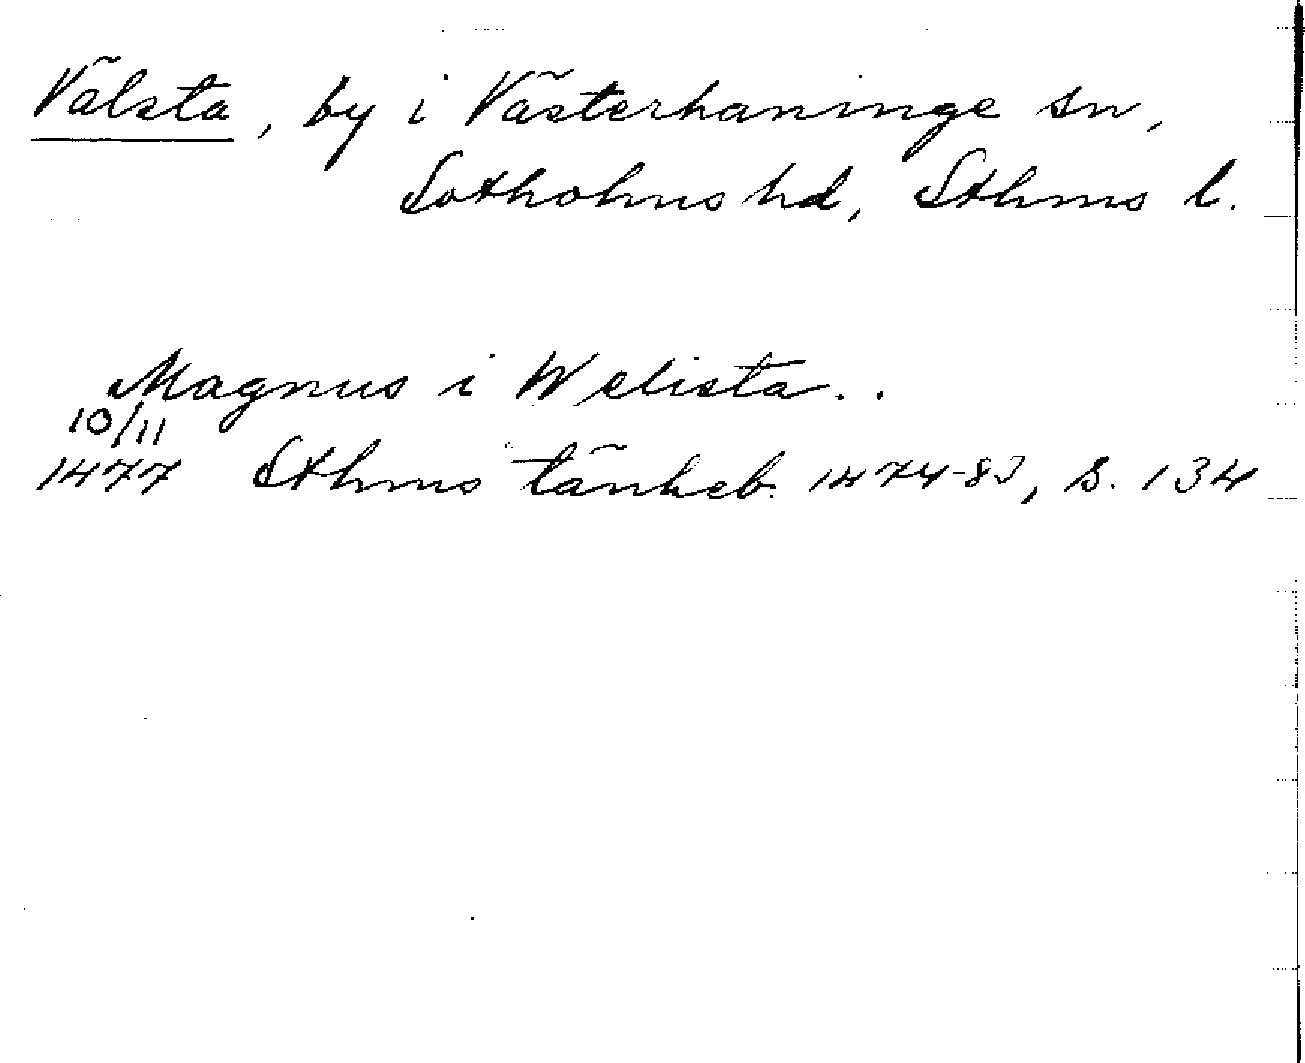 Välsta, by i Västerhaninge sn,
Sotholms hd, Sthms l.
Magnus i Welista..
10/11
1477 Sthms tänkeb. 1474-83, s. 134